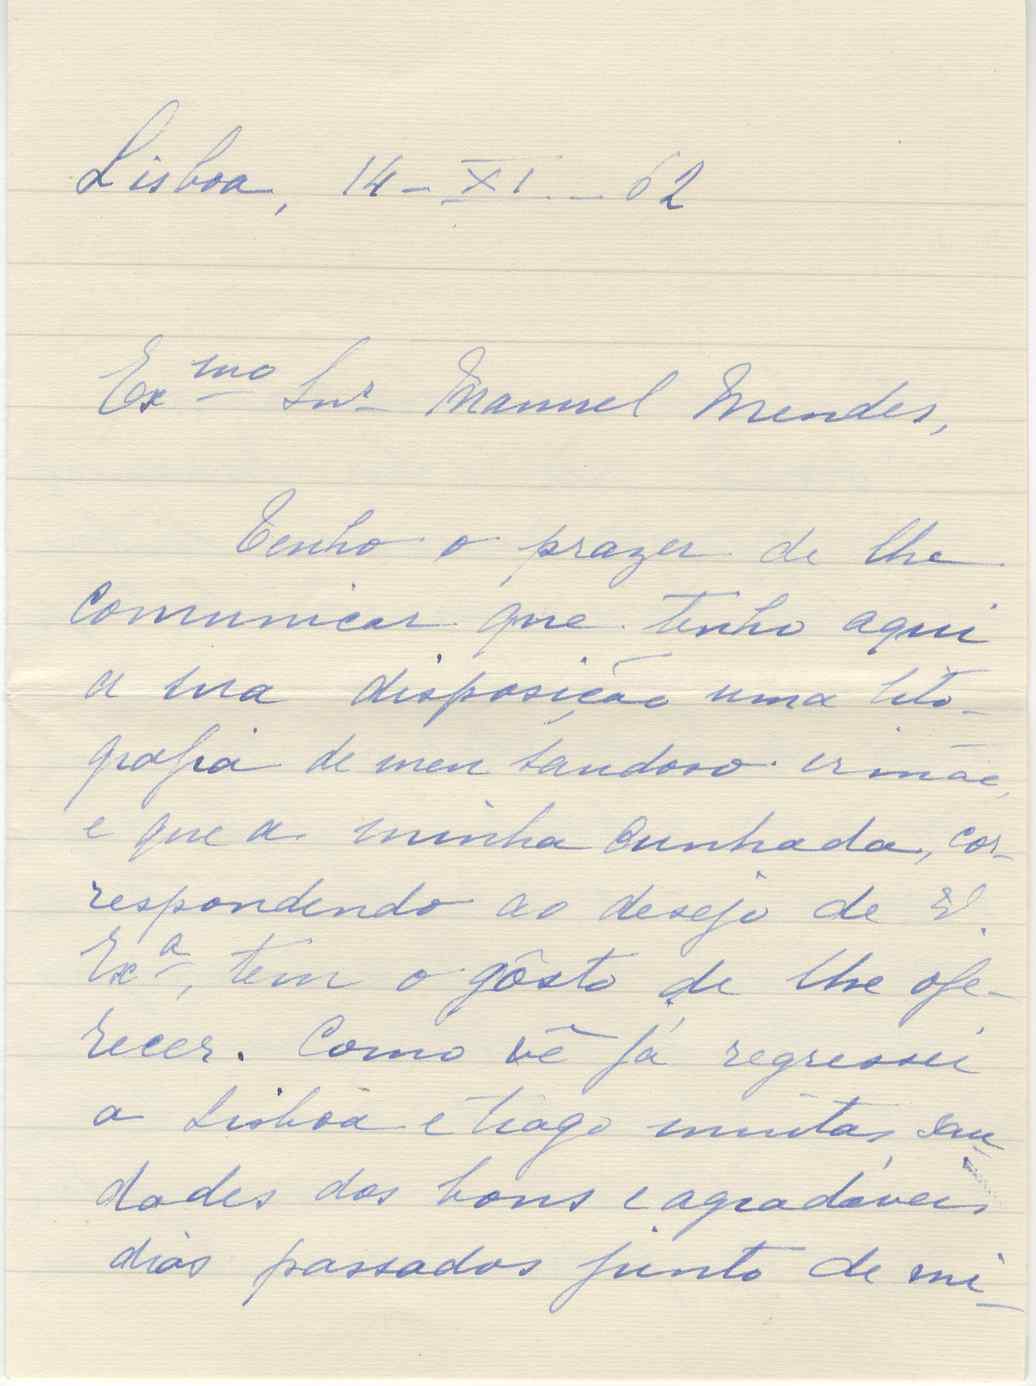 Lisboa, 14-XI-62
Exmo Snr Manuel Mendes,
Tenho o prazer de lhe
comunicar que tenho aqui
a sua disposição uma lito-
grafia de meu saudoso irmão,
e que a minha cunhada, cor-
respondendo ao desejo de V.
Exa, tem o gôsto de lhe ofe-
recer. Como vê já regressei
a Lisboa e trago muitas sau-
dades dos bons e agradáveis
dias passados junto de mi-